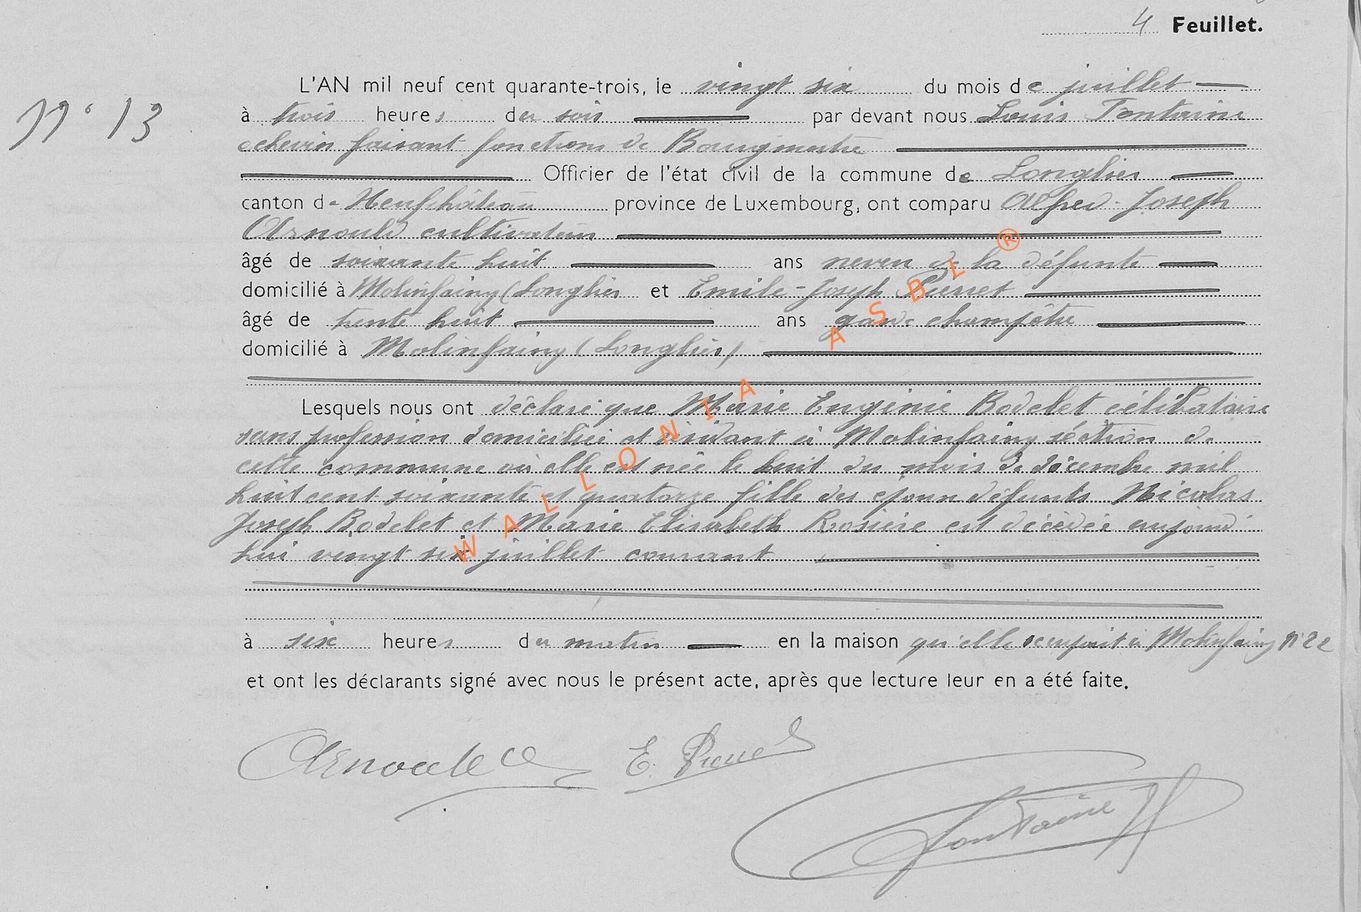 4 Feuillet.
N° 13
L'AN mil neuf cent quarante-trois, le vingt six du mois de juillet
à trois heures du soir par devant nous Louis Fontaine
échevin faisant fonctions de Bourgmestre
Officier de l'état civil de la commune de Longlier
canton de Neufchâteau province de Luxembourg, ont comparu Alfred-Joseph
Arnould cultivateur
âgé de soixante huit ans neveu de la défunte
domicilié à Molinfaing (Longlier et Emile-Joseph Pierret
âgé de trente huit ans garde champêtre
domicilié à Molinfaing (Longlier)
Lesquels nous ont déclaré que Marie Eugénie Bodelet célibataire
sans profession domiciliée et résidant à Molinfaing séction de
cette commune où elle est née le huit du mois de décembre mil
huit cent soixante et quatorze fille des époux défunts Nicolas
Joseph Bodelet et Marie Elisabeth Rosière est décédée aujourd'
hui vingt six juillet courant
à six heures du matin en la maison qu'elle occupait à Molinfaing N°22
et ont les déclarants signé avec nous le présent acte, après que lecture leur en a été faite.
Arnould E. Pierret
Fontaine
WALLONIA ASBL ®